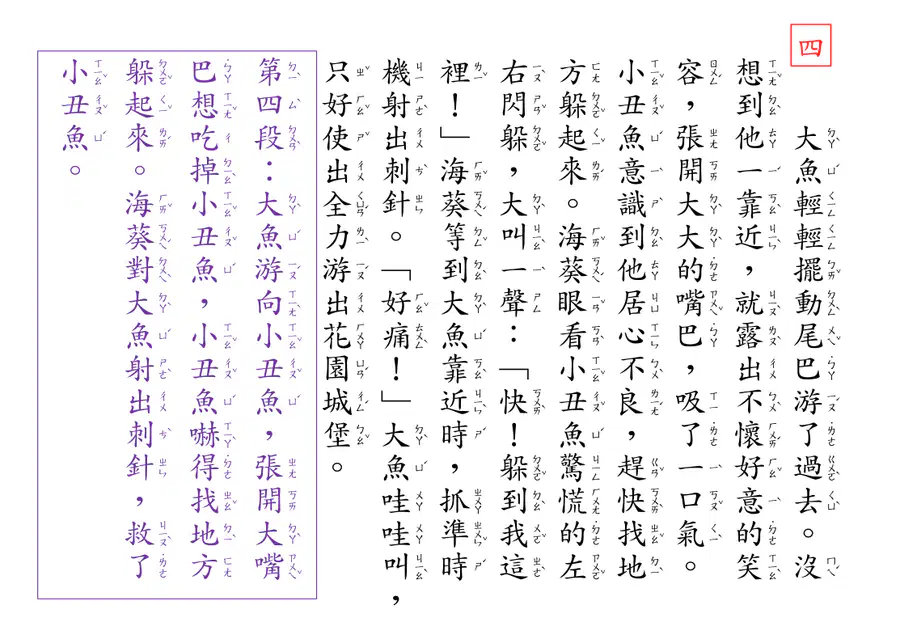 四
大魚輕輕擺動尾巴游了過去。沒
想到他一靠近,就露出不懷好意的笑
容,張開大大的嘴巴,吸了一口氣。
小丑魚意識到他居心不良,趕快找地
方躲起來。海葵眼看小丑魚驚慌的左
右閃躲,大叫一聲:「快!躲到我這
裡!」海葵等到大魚靠近時,抓準時
機射出刺針。「好痛!」大魚哇哇叫,
只好使出全力游出花園城堡。
第四段:大魚游向小丑魚,張開大嘴
巴想吃掉小丑魚,小丑魚嚇得找地方
躲起來。海葵對大魚射出刺針,救了
小丑魚。